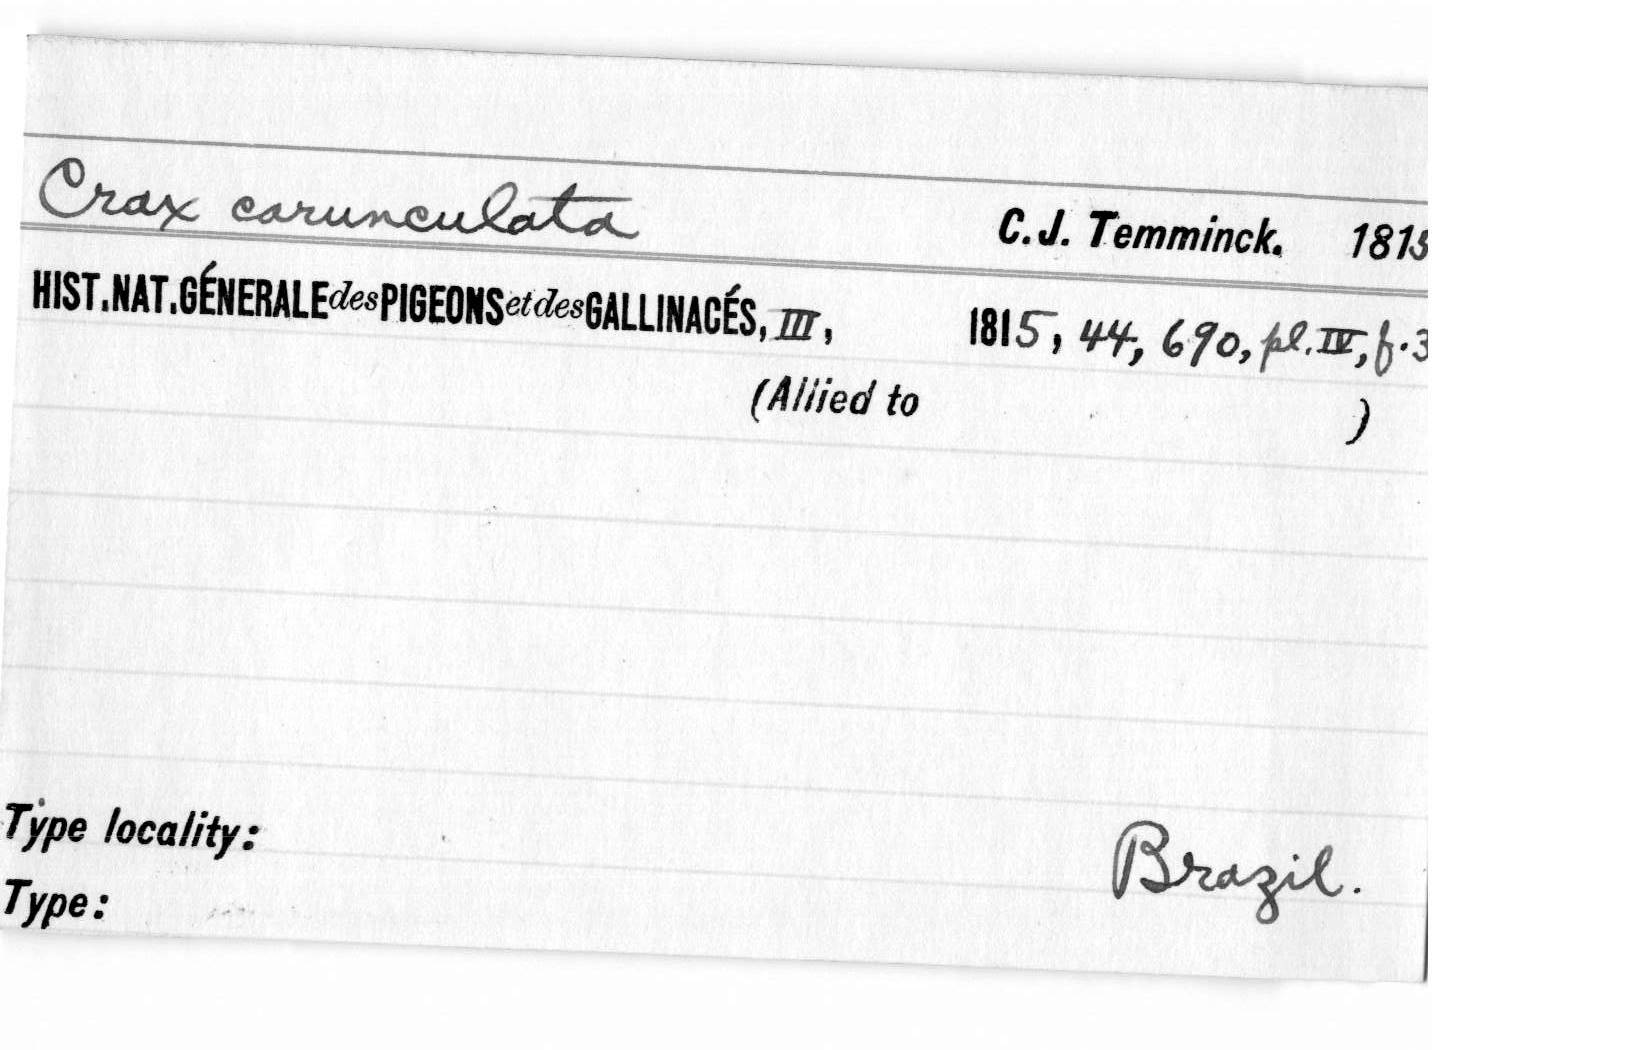 Crax carunculata C.J. Temminck. 1815
HIST.NAT.GÉNERALE des PIGEONS et des GALLINACÉS, III, 1815, 44, 690, pl. IV, f. 3
(Allied to )
Type locality: Brazil.
Type: